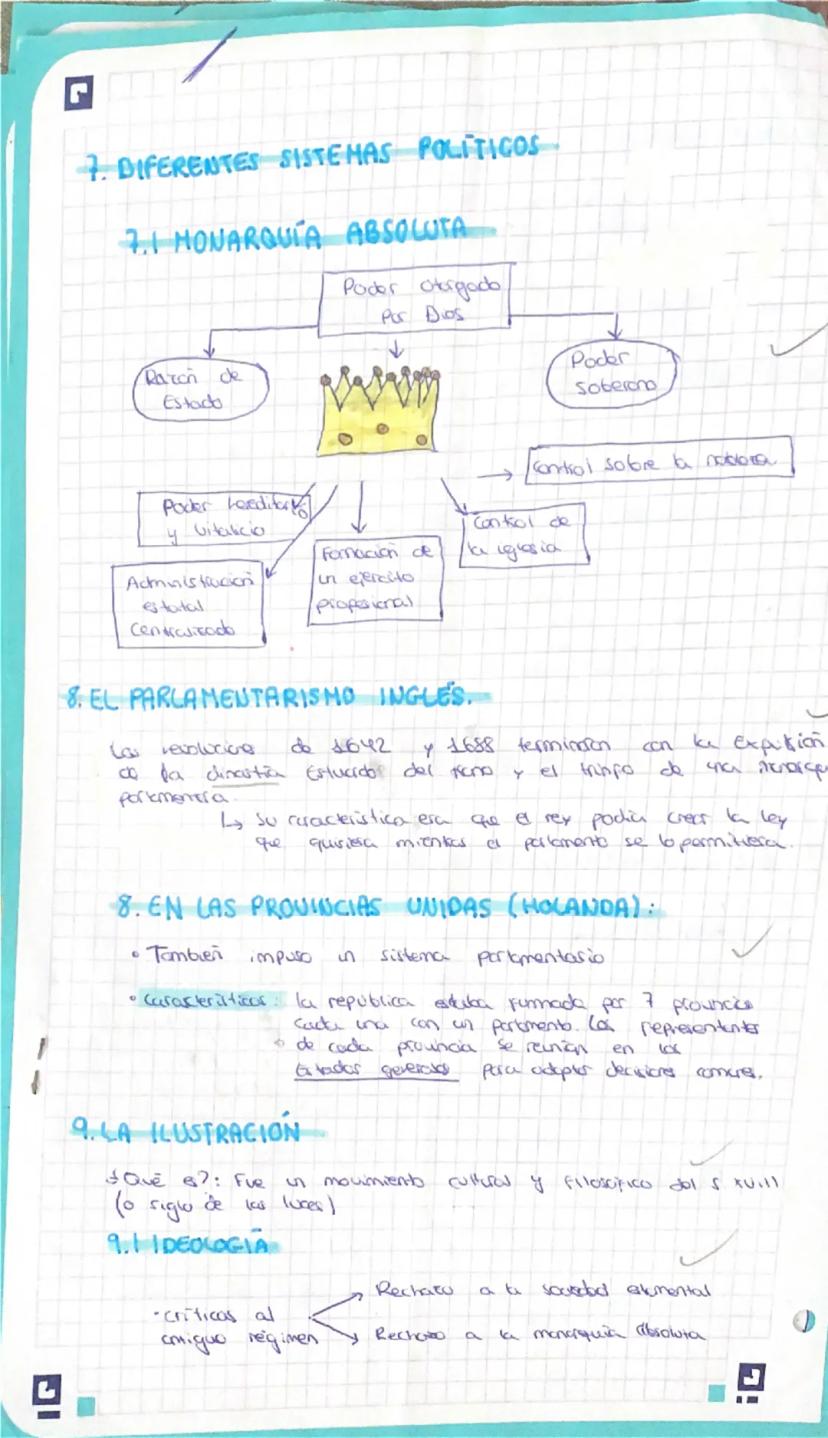 7. DIFERENTES SISTEMAS POLÍTICOS
7.1 MONARQUÍA ABSOLUTA
Poder otorgado
por Dios
Razón de
Estado
Poder
soberano
Control sobre la nobleza
Poder hereditario
y vitalicio
Control de
la iglesia
Formación de
un ejército
profesional
Administración
estatal
Centralizado
8. EL PARLAMENTARISMO INGLÉS.
Las revoluciones de 1642 y 1688 terminaron con la expulsión
de la dinastía Estuardo del trono y el triunfo de una
parlamentaria.
↳ Su característica era que el rey podía crear la ley
que quisiera mientras el parlamento se lo permitiera.
8. EN LAS PROVINCIAS UNIDAS (HOLANDA):
• También impuso un sistema parlamentario
• Características: la república estaba formada por 7 provincias
cada una con un parlamento. Los representantes
de cada provincia se reunían en los
Estados generales para adoptar decisiones comunes.
9. LA ILUSTRACIÓN
¿Qué es?: Fue un movimiento cultural y filosófico del S XVIII
(o siglo de las luces)
9.1 IDEOLOGÍA
Rechazo a la sociedad estamental
- críticas al
antiguo régimen
Rechazo a la monarquía absoluta